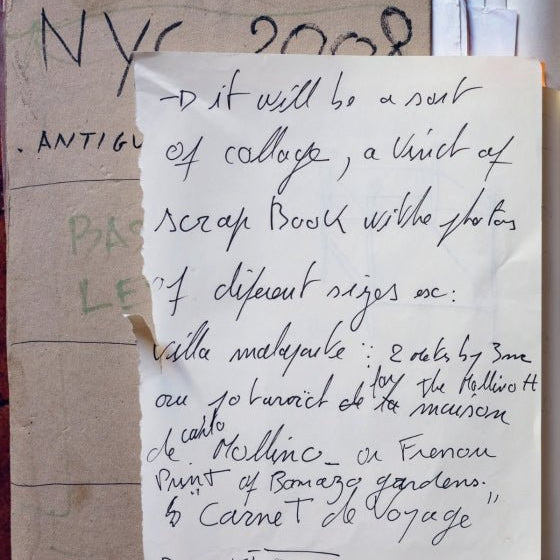 NYC 2008
. ANTIGU
BAS
LE
→ it will be a sort
of collage, a kind of
scrap Book withe photos
of diferent sizes ex:
villa malaparte : 2 meters by 3m
ou polaroid de la maison
for The Mollino H
de carlo Mollino_ or Frenou
Print of Bomazo gardens.
↳ "Carnet de Voyage"